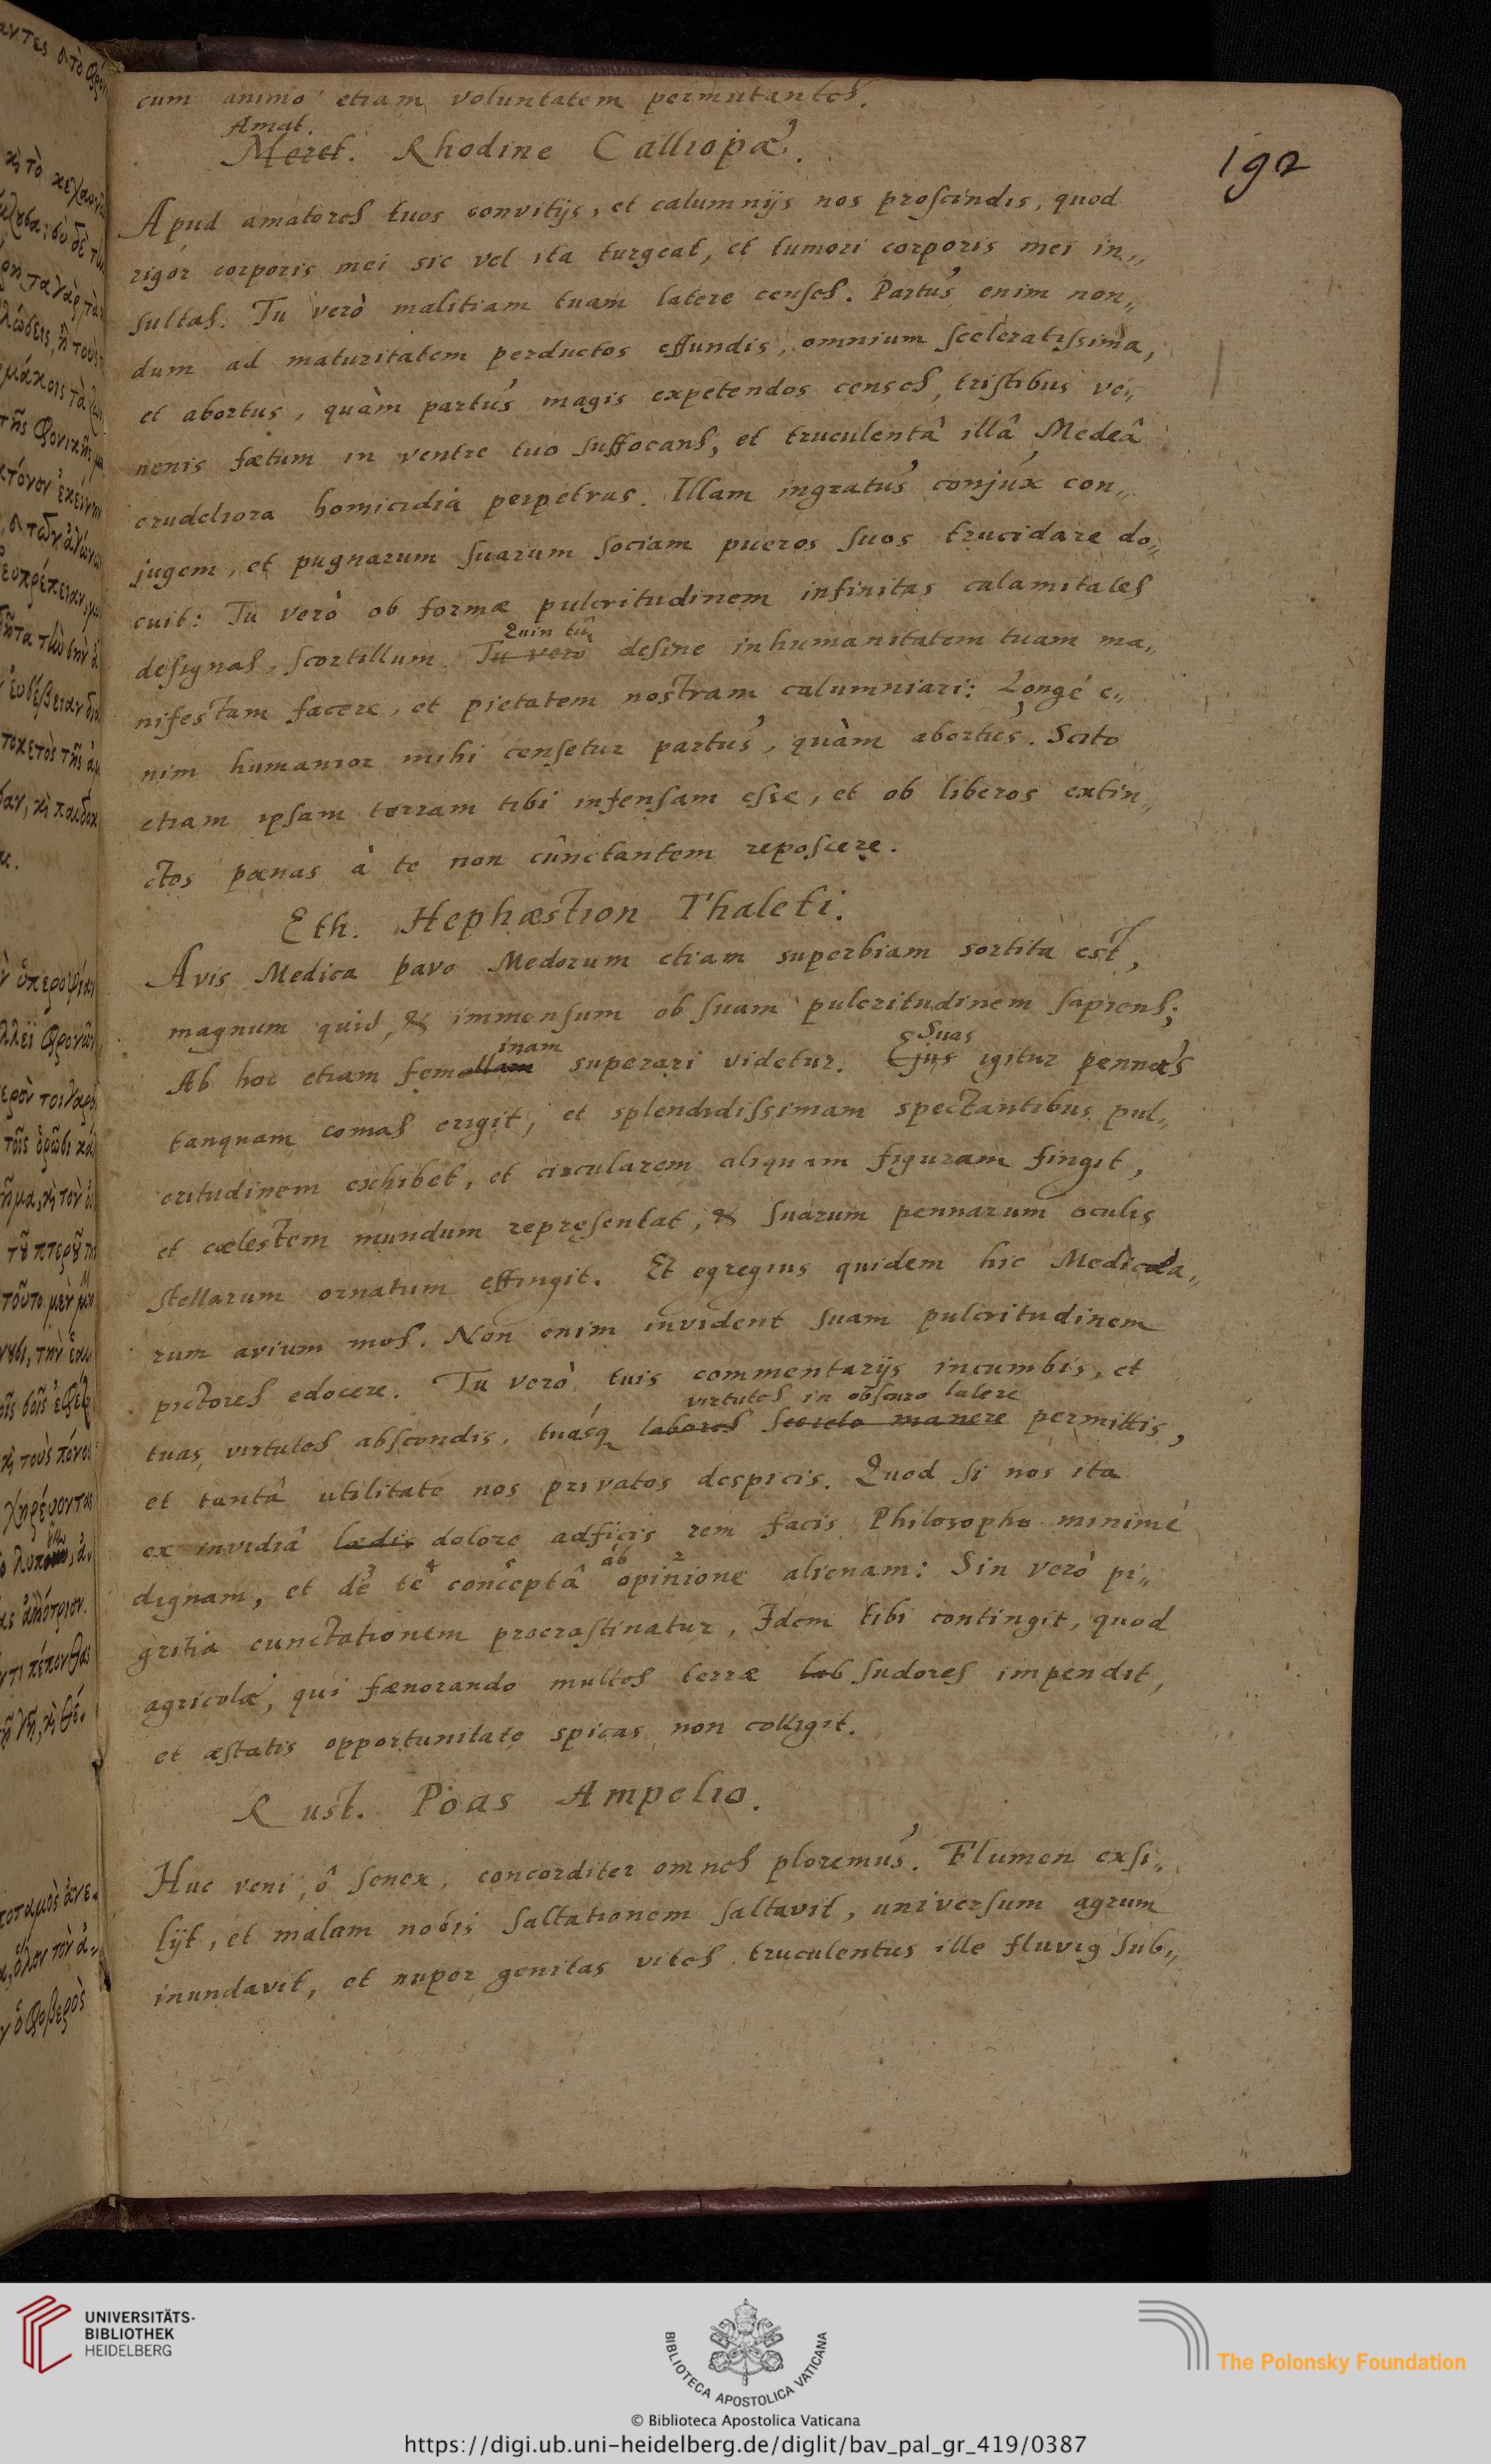 cum animo etiam voluntatem permutantes.
Amat.
Meret. Rhodine Calliopæ.
192
Apud amatores tuos convitijs, et calumnijs nos proscindis, quod
rigor corporis mei sic vel ita turgeat, et tumori corporis mei in„
sultas. Tu verò malitiam tuam latere censes. Partus enim non„
dum ad maturitatem perductos effundis, omnium sceleratissima,
et abortus, quàm partus magis expetendos censes, tristibus ve„
nenis fœtum in ventre tuo suffocans, et truculentâ illâ Medeâ
crudeliora homicidia perpetras. Illam ingratus conjux con„
jugem, et pugnarum suarum sociam pueros suos trucidare do„
cuit: Tu verò ob formæ pulcritudinem infinitas calamitates
Quin tu
designas, scortillum. Tu vero desine inhumanitatem tuam ma„
nifestam facere, et pietatem nostram calumniari: Longè e„
nim humanior mihi censetur partus, quàm abortus. Scito
etiam ipsam terram tibi infensam esse, et ob liberos extin„
ctos pœnas à te non cunctantem reposcere.
Eth. Hephæstion Thaleti.
Avis Medica pavo Medorum etiam superbiam sortita est,
magnum quid, & immensum ob suam pulcritudinem sapiens;
inam Suas
Ab hoc etiam femellam superari videtur. Ejus igitur pennas
tanquam comas erigit, et splendidissimam spectantibus pul„
critudinem exhibet, et circularem aliquam figuram fingit,
et cælestem mundum repręsentat, & suarum pennarum oculis
stellarum ornatum effingit. Et egregius quidem hic Medica„
rum avium mos. Non enim invident suam pulcritudinem
pictores edocere. Tu verò tuis commentarijs incumbis, et
virtutes in obscuro latere
tuas virtutes abscondis, tuasq labores secreto manere permittis,
et tantâ utilitate nos privatos despicis. Quod si nos ita
ex invidiâ lædis dolore adficis rem facis Philosopho minimè
ab
dignam, et de te conceptâ opinione alienam: Sin verò pi„
gritia cunctationem procrastinatur, Idem tibi contingit, quod
agricolæ, qui fænorando multos terræ lab sudores impendit,
et æstatis opportunitate spicas non colligit.
Rust. Poas Ampelio.
Huc veni, ô senex, concorditer omnes ploremus. Flumen exsi„
lijt, et malam nobis saltationem saltavit, universum agrum
inundavit, et nuper genitas vites truculentus ille fluvig sub„
UNIVERSITÄTS-
BIBLIOTHEK
HEIDELBERG
BIBLIOTECA APOSTOLICA VATICANA
The Polonsky Foundation
© Biblioteca Apostolica Vaticana
https://digi.ub.uni-heidelberg.de/diglit/bav_pal_gr_419/0387